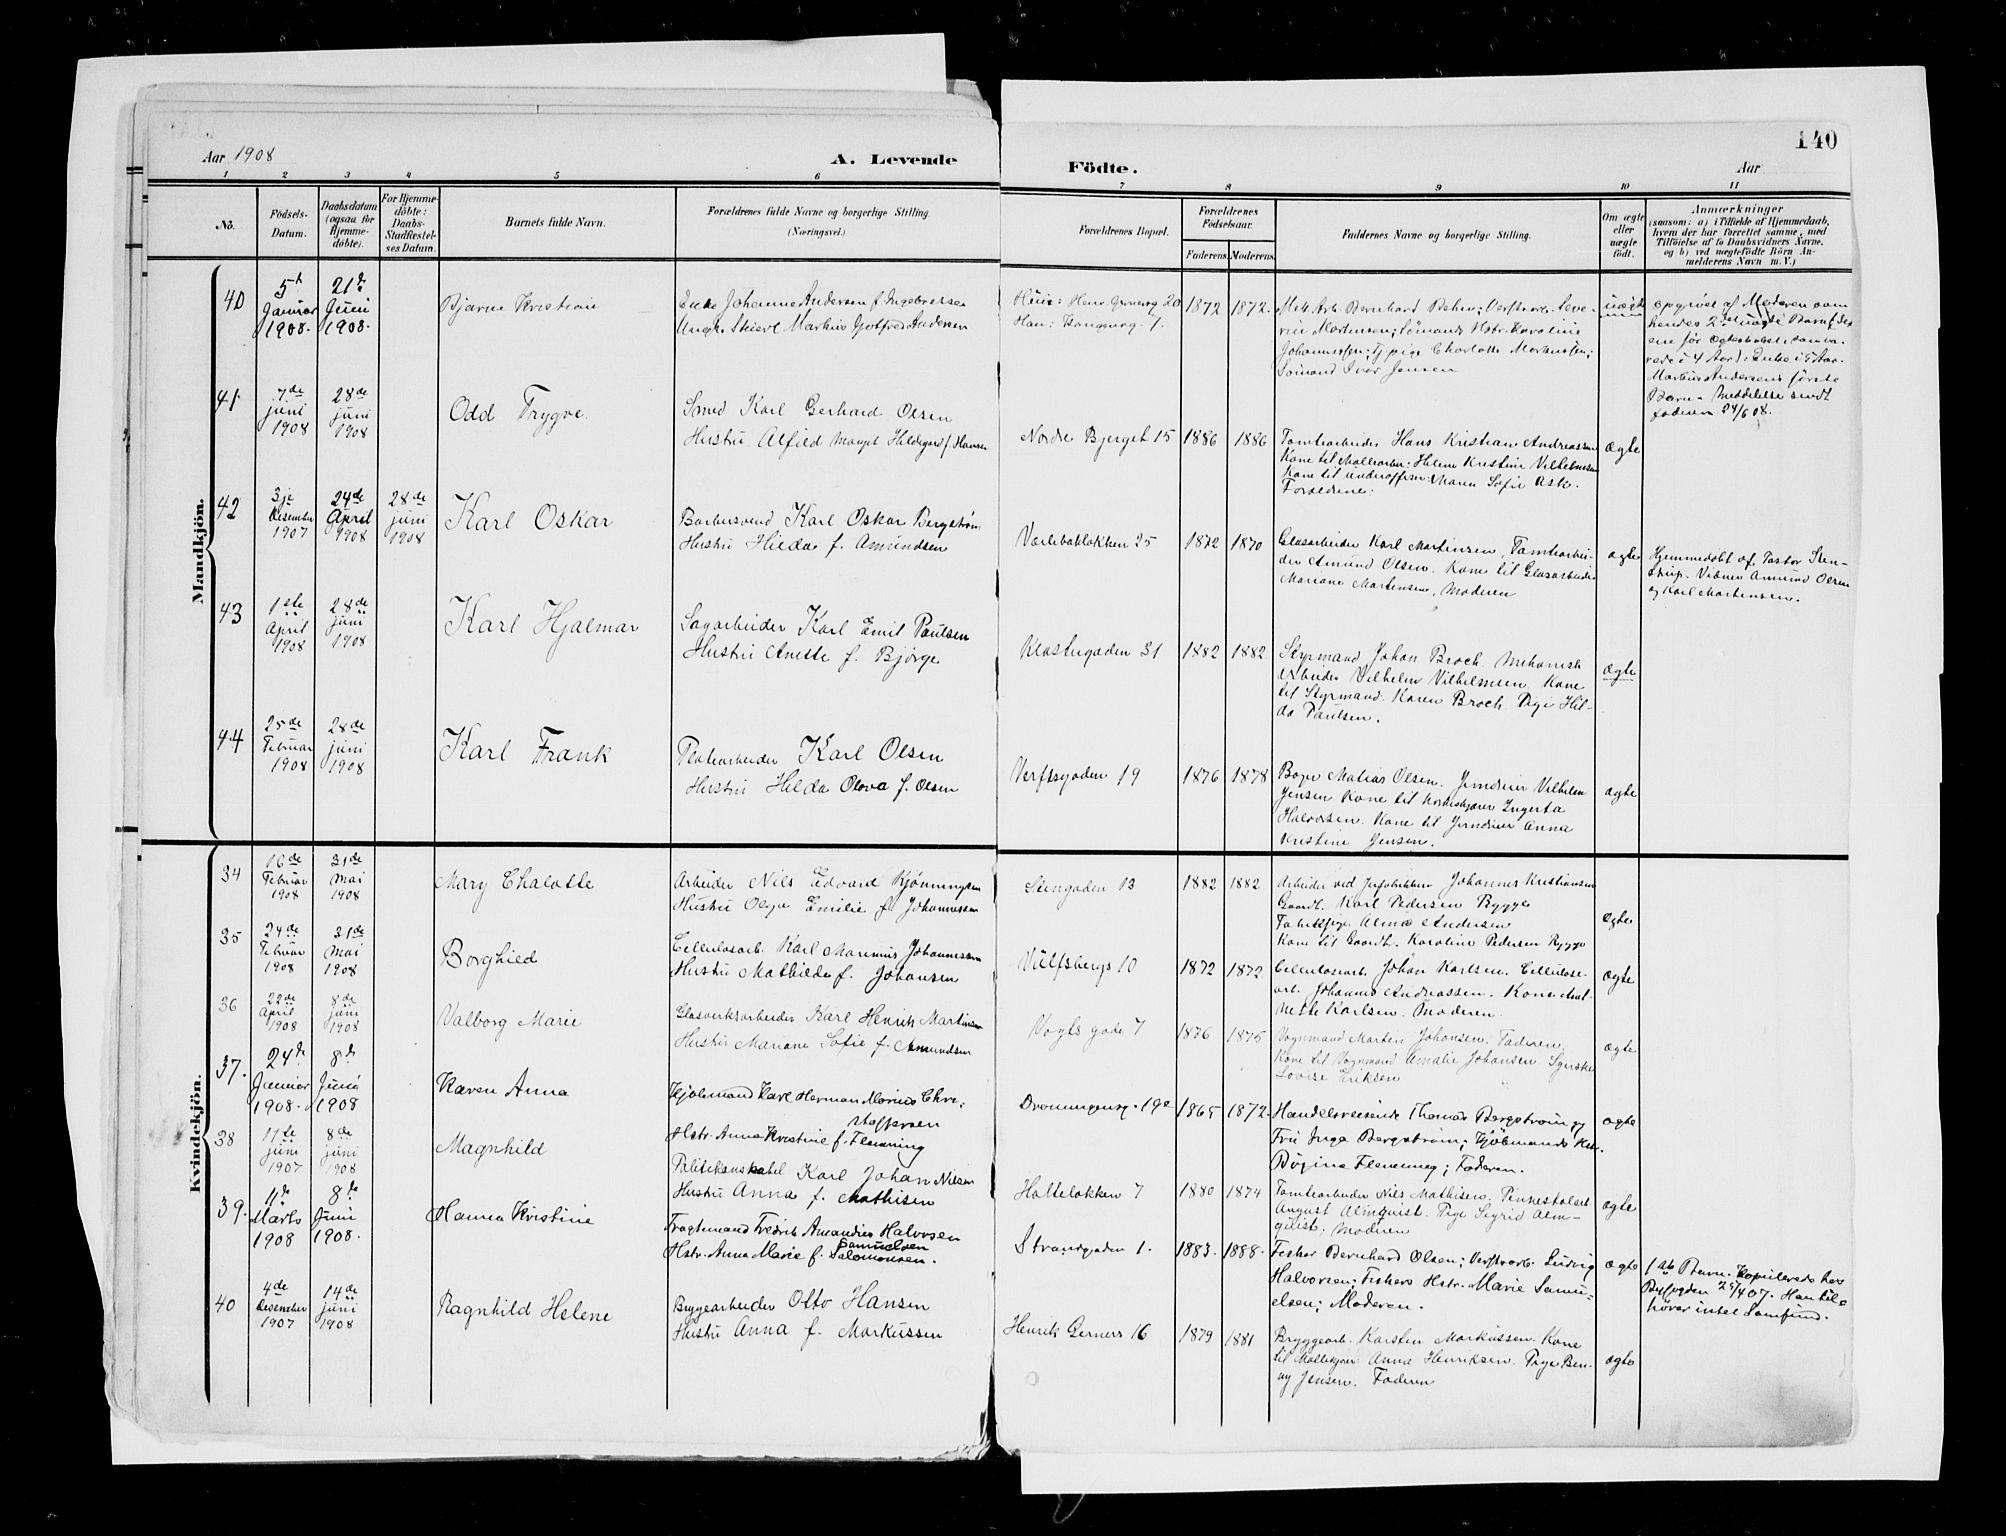 140
Aar 1908
A. Levende
Födte.
Aar
1 2 3 4 5 6 7 8 9 10 11
No.
Födsels-
Datum.
Daabsdatum
(ogsaa for
Hjemme-
döbte).
For Hjemme-
döbte:
Daabs-
Stadfæstel-
ses Datum.
Barnets fulde Navn.
Forældrenes fulde Navne og borgerlige Stilling
(Næringsvei.)
Forældrenes Bopæl.
Forældrenes
Födselsaar.
Faderens. Moderens.
Faddernes Navne og borgerlige Stilling.
Om ægte
eller
uægte
födt.
Anmærkninger
(saasom: a) i Tilfælde af Hjemmedaab,
hvem der har forrettet samme, med
Tilföielse af to Daabsvidners Navne.
og b) ved uægtefödte Börn An-
melderens Navn m. V.)
Mandkjön.
40
5t
Januar
1908.
21de
Juni
1908.
Bjarne Kristian
Enke Johanne Andersen f. Ingebretsen
Ungk. Markus Gotfred Andersen
20
Han: 7.
1872 1872.
Mek. Arb. Bernhard Behn; Verftsarb. Seve-
rin Mortensen; Sømands Hstr. Karoline
Johannessen; Tj. pige Charlotte Markussen;
Sømand Ivar Jensen
uægte
opgivet af Moderen som
hendes 2det uægte Barn
ene før
rede i 4 Aar). Enke i 5 Aar.
Markus Andersens første
Barn. Meddelelse sendt
faderen 24/6 08.
41
7de
juni
1908
28de
juni
1908
Odd Trygve.
Smed Karl Gerhard Olsen
Hustru Alfild Margit Hildegard f. Hansen
Nordre Bjerget 15
1886 1886
Tomtearbeider Hans Kristian Andreassen
Kone til Møllearb: Helene Kristine Vilhelmsen
Kone til underofficer: Maren Sofie Ask.
Forældrene:
ægte
42
3je
Desember
1907
24de
April
1908
28de
juni
1908
Karl Oskar
Barbersvend Karl Oskar Bergstrøm
Hustru Hilda f. Amundsen
Værlebakløkken 25
1872 1870
Glasarbeider Karl Martinsen, Tomtearbei-
der Amund Olsen. Kone til Glasarbeider
Mariane Martensen, Moderen
ægte
Hjemmedøbt af Pastor Sten-
strup. Vidner Amund Olsen
og Karl Martensen.
43
1ste
April
1908
28de
juni
1908
Karl Hjalmar
Sagarbeider Karl Emil Paulsen
Hustru Anette f. Bjørge
Klostergaden 31
1882 1882
Styrmand Johan Broch. Mekanisk
Arbeider Vilhelm Vilhelmsen. Kone
til Styrmand Karen Broch Pige Hil-
da Paulsen.
ægte
44
25de
Februar
1908
28de
juni
1908
Karl Frank
Platearbeider Karl Olsen
Hustru Hilda Olava f. Olsen
Verftsgaden 19
1876 1878
Bager Matias Olsen. Jerndreier Vilhelm
Jensen Kone til Ingerta
Halvorsen. Kone til Jerndreier Anna
Kristine Jensen.
ægte
Kvindekjön.
34
16de
Februar
1908
31de
Mai
1908
Mary Chalotte
Arbeider Nils Edvard Kjønnigsen
Hustru Olga Emilie f. Johannessen
Stengaden 13
1882 1882
Arbeider ved Johannes Kristiansen
Gaardb. Karl Pedersen Rygge
Fabrikpige Alma Andersen
Kone til Gaardb. Karoline Pedersen Rygge
ægte
35
24de
Februar
1908
31de
Mai
1908
Borghild
Cellulosarb. Karl Marinius Johannessen
Hustru Mathilde f. Johansen
Vulfsbergs 10
1872 1872
Cellulosarb. Johan Karlsen. Cellulose-
arb. Johannes Andreassen. Kone Ant-
nette Karlsen. Moderen.
ægte
36
22de
April
1908
8de
juni
1908
Valborg Marie
Glasverksarbeider Karl Henrik Martinsen
Hustru Mariane Sofie f. Amundsen
Vogts gade 7
1876 1875
Vognmand Marten Johansen. Faderen.
Kone til Vognmand Amalie Johansen Syerske
Lovise Eriksen
ægte
37.
24de
Januar
1908.
8de
Juni
1908
Karen Anna
Kjøbmand Karl Herman Marius Chri-
stoffersen
Hstr. Anna Kristine f. Flemming
Dronningensg. 19e
1865 1872.
Handelsreisende Thomas Bergstrøm og
Fru Inga Bergstrøm; Kjøbmands Hstr.
Flemming; Faderen.
ægte
38
11te
juni
1907
8de
juni
1908
Magnhild
Politikonstabel Karl Johan Nilsen
Hustru Anna f. Mathisen
Holteløkken 7
1880 1874
Tomtearbeider Nils Mathisen.
August Almquist. Pige Sigrid Alm-
quist; Moderen
ægte
39.
11te
Marts
1908
8de
Juni
1908.
Hanna Kristine
Fragtemand Fredrik Amandius Halvorsen
Samuelsen
Hstr. Anna Marie f. Salomonsen.
Strandgaden 1.
1883. 1888.
Fisker Bernhard Olsen; Verftsarb. Ludvig
Halvorsen; Fiskers Hstr. Marie Samu-
elsen; Moderen.
ægte
1ste Barn. Kopulerede hos
Byfogden 25/4 07. Han tilc
hører intet Samfund.
40
4de
Desember
1907
14de
juni
1908
Ragnhild Helene
Bryggearbeider Otto Hansen
Hustru Anna f. Markussen
Henrik Gerners 16
1879 1881
Bryggearb. Karsten Markussen. Kone
til Anna Henriksen. Pige Ben-
ny Jensen. Faderen
ægte